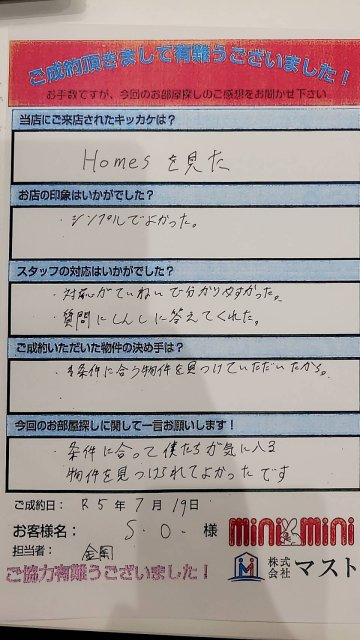 ご成約頂きまして有難うございました！
お手数ですが、今回のお部屋探しのご感想をお聞かせ下さい
当店にご来店されたキッカケは？
Homesを見た
お店の印象はいかがでした？
・シンプルでよかった。
スタッフの対応はいかがでした？
・対応がていねいで分かりやすかった。
・質問にしんしに答えてくれた。
ご成約いただいた物件の決め手は？
・条件に合う物件を見つけていただいたから。
今回のお部屋探しに関して一言お願いします！
・条件に合って僕たちが気に入る
物件を見つけられてよかったです
ご成約日： R5年7月19日
お客様名： S.O. 様 mini mini
担当者：
株式会社 マスト
ご協力有難うございました！